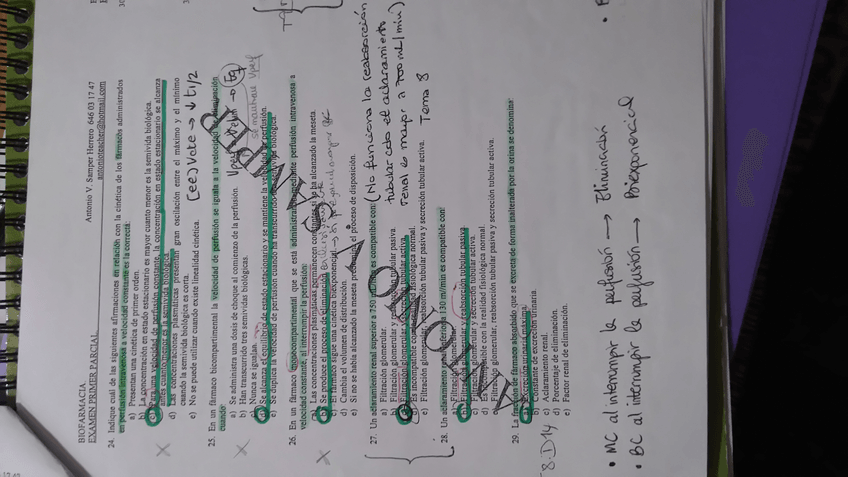 BIOFARMACIA
EXAMEN PRIMER PARCIAL
Antonio V. Samper Herrero 646 03 17 47
antonioteacher@hotmail.com
24. Indique cual de las siguientes afirmaciones en relación con la cinética de los fármacos administrados
en perfusión intravenosa a velocidad constante es la correcta
a) Presentan una cinética de primer orden.
b) La concentración en estado estacionario es mayor cuanto menor es la semivida biológica.
c) Para una velocidad de perfusión constante, la concentración en estado estacionario se alcanza
antes cuanto menor es la semivida biológica
d) Las concentraciones plasmáticas presentan gran oscilación entre el máximo y el mínimo
cuando la semivida biológica es corta.
e) No se puede utilizar cuando existe linealidad cinética.
[ee] Vcte → ↓ t1/2
25. En un fármaco bicompartimental la velocidad de perfusión se iguala a la velocidad de eliminación
cuando
a) Se administra una dosis de choque al comienzo de la perfusión.
b) Han transcurrido tres semividas biológicas.
c) Nunca se igualan.
d) Se alcanza el equilibrio de estado estacionario y se mantiene la velocidad de perfusión.
e) Se duplica la velocidad de perfusión cuando ha transcurrido una semivida biológica.
26. En un fármaco monocompartimental que se está administrando mediante perfusión intravenosa a
velocidad constante, al interrumpir la perfusión
a) Las concentraciones plasmáticas permanecen constantes si se ha alcanzado la meseta.
b) Se produce el proceso de eliminación
c) El fármaco sigue una cinética biexponencial
d) Cambia el volumen de distribución.
e) Si no se había alcanzado la meseta predomina el proceso de disposición.
27. Un aclaramiento renal superior a 750 ml/min es compatible con:
a) Filtración glomerular.
b) Filtración glomerular y reabsorción tubular pasiva
c) Filtración glomerular y secreción tubular activa
d) Es incompatible con la realidad fisiológica normal.
e) Filtración glomerular, reabsorción tubular pasiva y secreción tubular activa.
(No funciona la reabsorción
tubular el aclaramiento
renal es mayor a 700 mL/min)
Tema 8
28. Un aclaramiento renal inferior a 130 ml/min es compatible con:
a) Filtración glomerular
b) Filtración glomerular y reabsorción tubular pasiva
c) Filtración glomerular y secreción tubular activa.
d) Es incompatible con la realidad fisiológica normal.
e) Filtración glomerular, reabsorción tubular pasiva y secreción tubular activa.
29. La fracción de fármaco absorbido que se excreta de forma inalterada por la orina se denomina
a) Excreción urinaria máxima
b) Constante de excreción urinaria.
c) Aclaramiento renal.
d) Porcentaje de eliminación.
e) Factor renal de eliminación.
T8. D14
• MC al interrumpir la perfusión → Eliminación
• BC al interrumpir la perfusión → Biexponencial